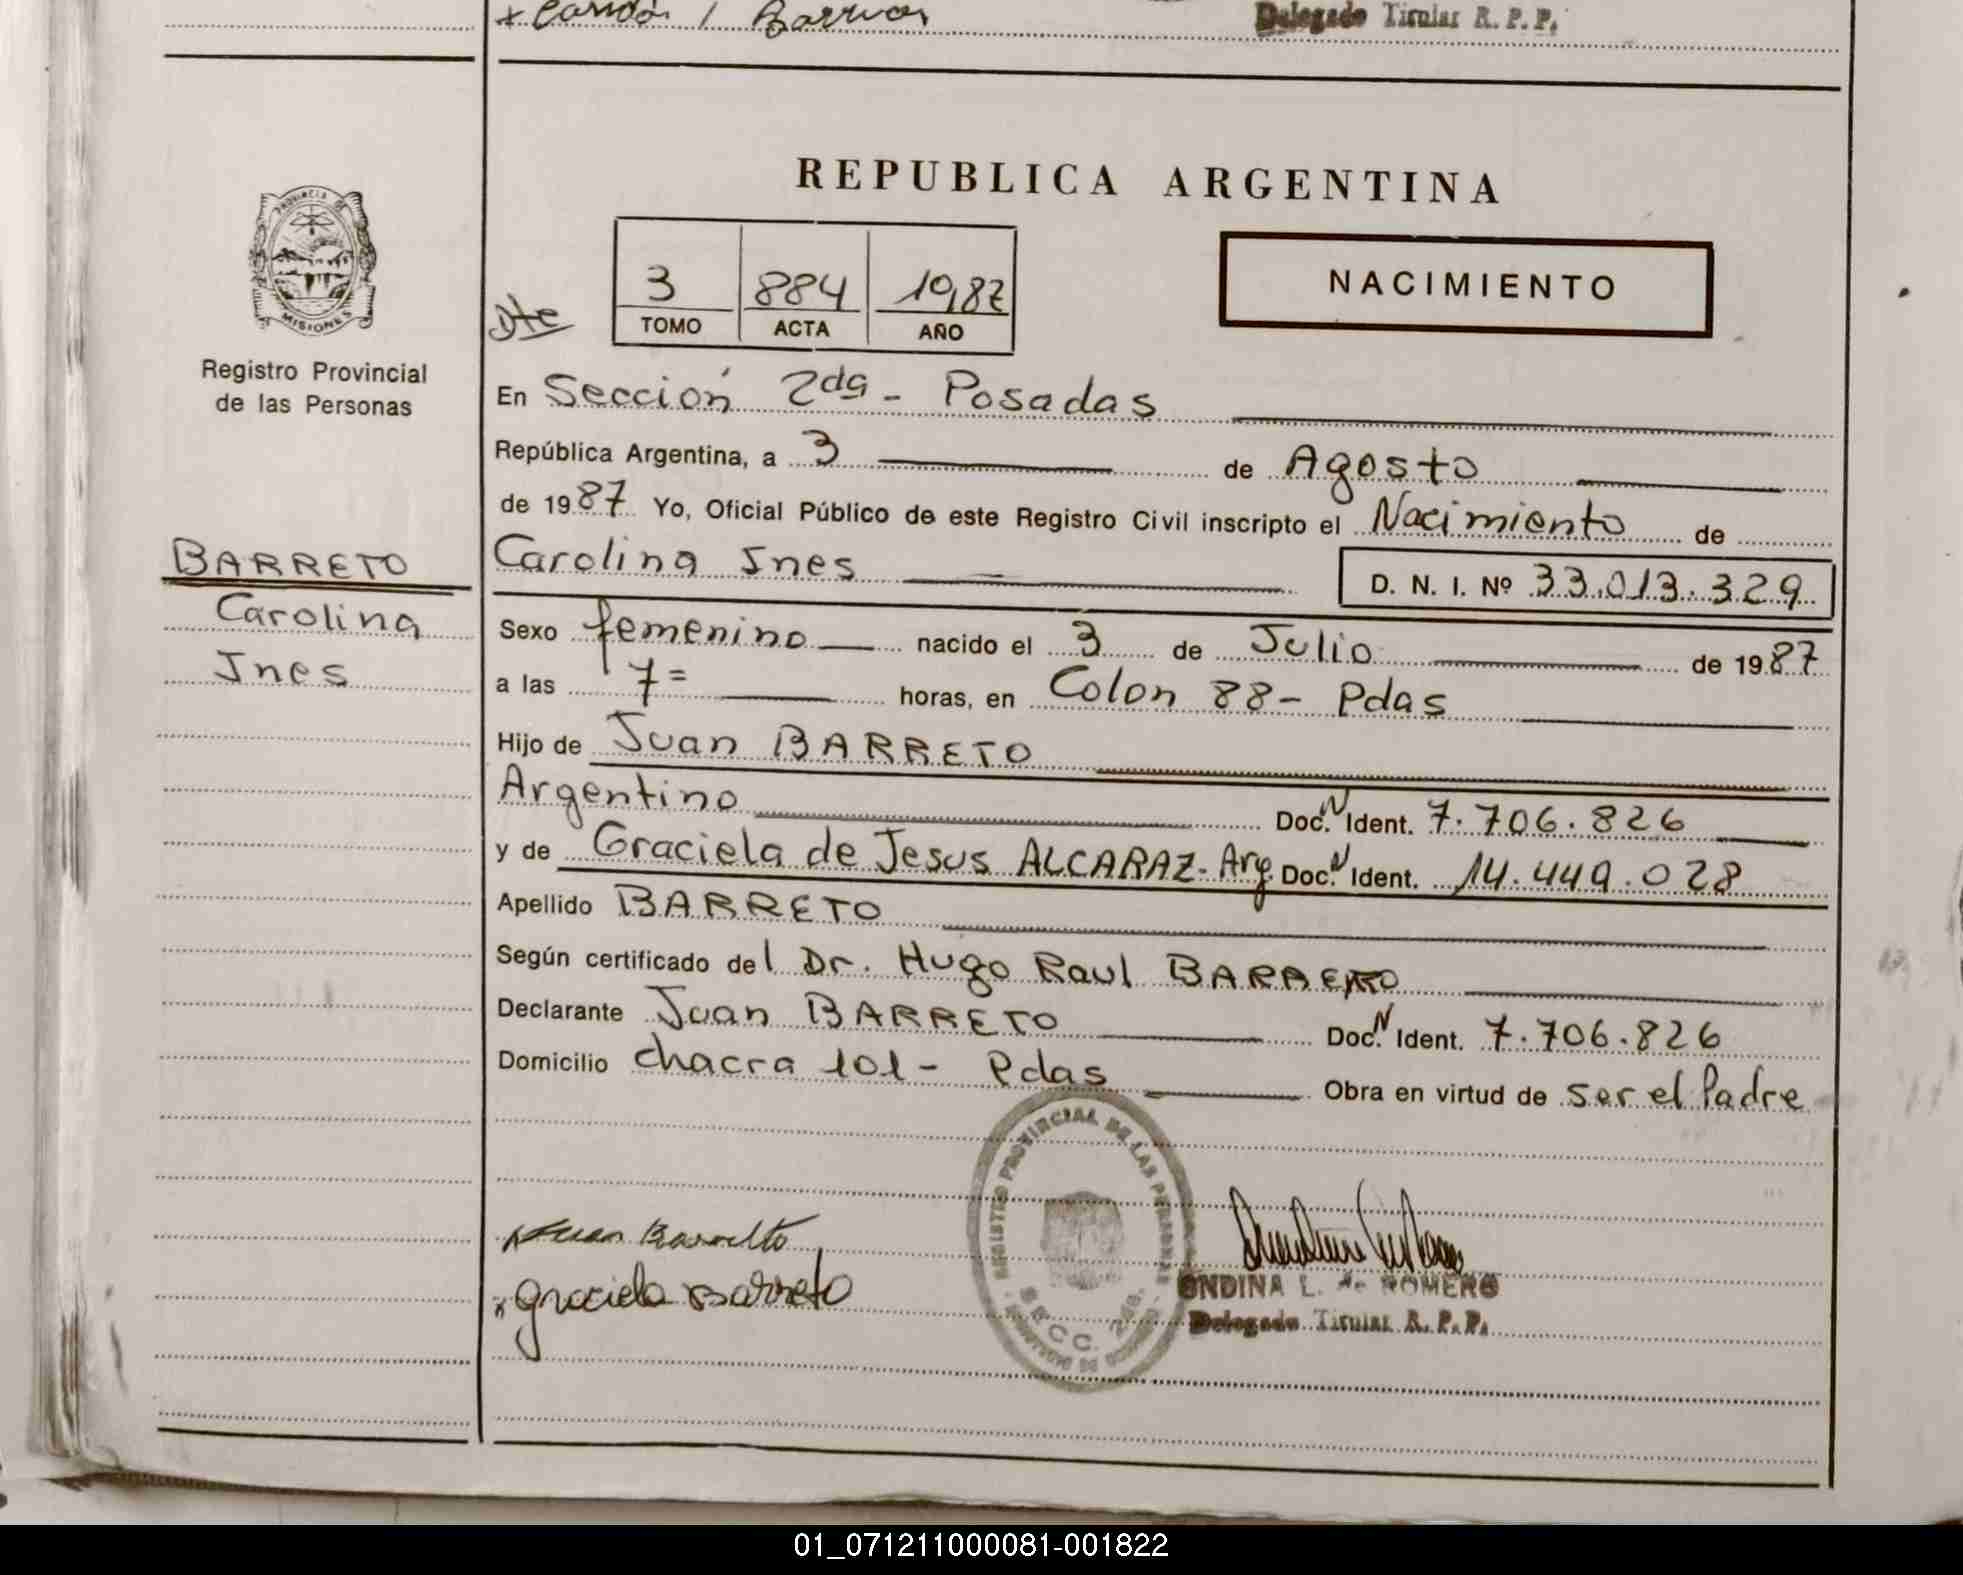 Delegado Titular R. P. P.
REPUBLICA ARGENTINA
PROVINCIA DE
MISIONES
Registro Provincial
de las Personas
Dte
3 884 1987
TOMO ACTA AÑO
NACIMIENTO
En Sección 2da - Posadas
República Argentina, a 3 de Agosto
de 1987 Yo, Oficial Público de este Registro Civil inscripto el Nacimiento de
BARRETO
Carolina
Ines
Carolina Ines D. N. I. Nº 33.013.329
Sexo femenino nacido el 3 de Julio de 1987
a las 7= horas, en Colon 88 - Pdas
Hijo de Juan BARRETO
Argentino Doc. N Ident. 7.706.826
y de Graciela de Jesus ALCARAZ - Arg Doc. N Ident. 14.449.028
Apellido BARRETO
Según certificado del Dr. Hugo Raul BARRETO
Declarante Juan BARRETO Doc. N Ident. 7.706.826
Domicilio chacra 101 - Pdas Obra en virtud de ser el Padre
REGISTRO PROVINCIAL DE LAS PERSONAS
SECC. 2da.
Juan Barreto
Graciela Barreto
ONDINA L. de ROMERO
Delegado Titular R. P. P.
01_071211000081-001822